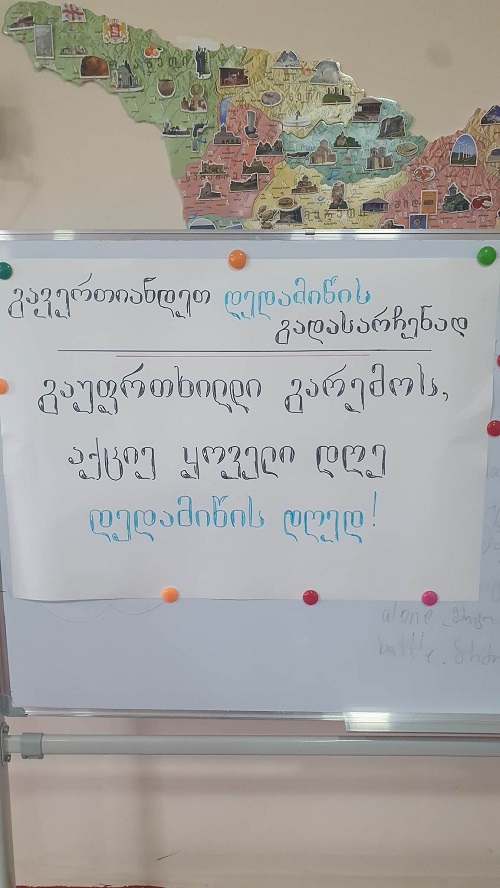 გავერთიანდეთ დედამიწის
გადასარჩენად
გაუფრთხილდი გარემოს,
აქციე ყოველი დღე
დედამიწის დღედ!
alone
battle